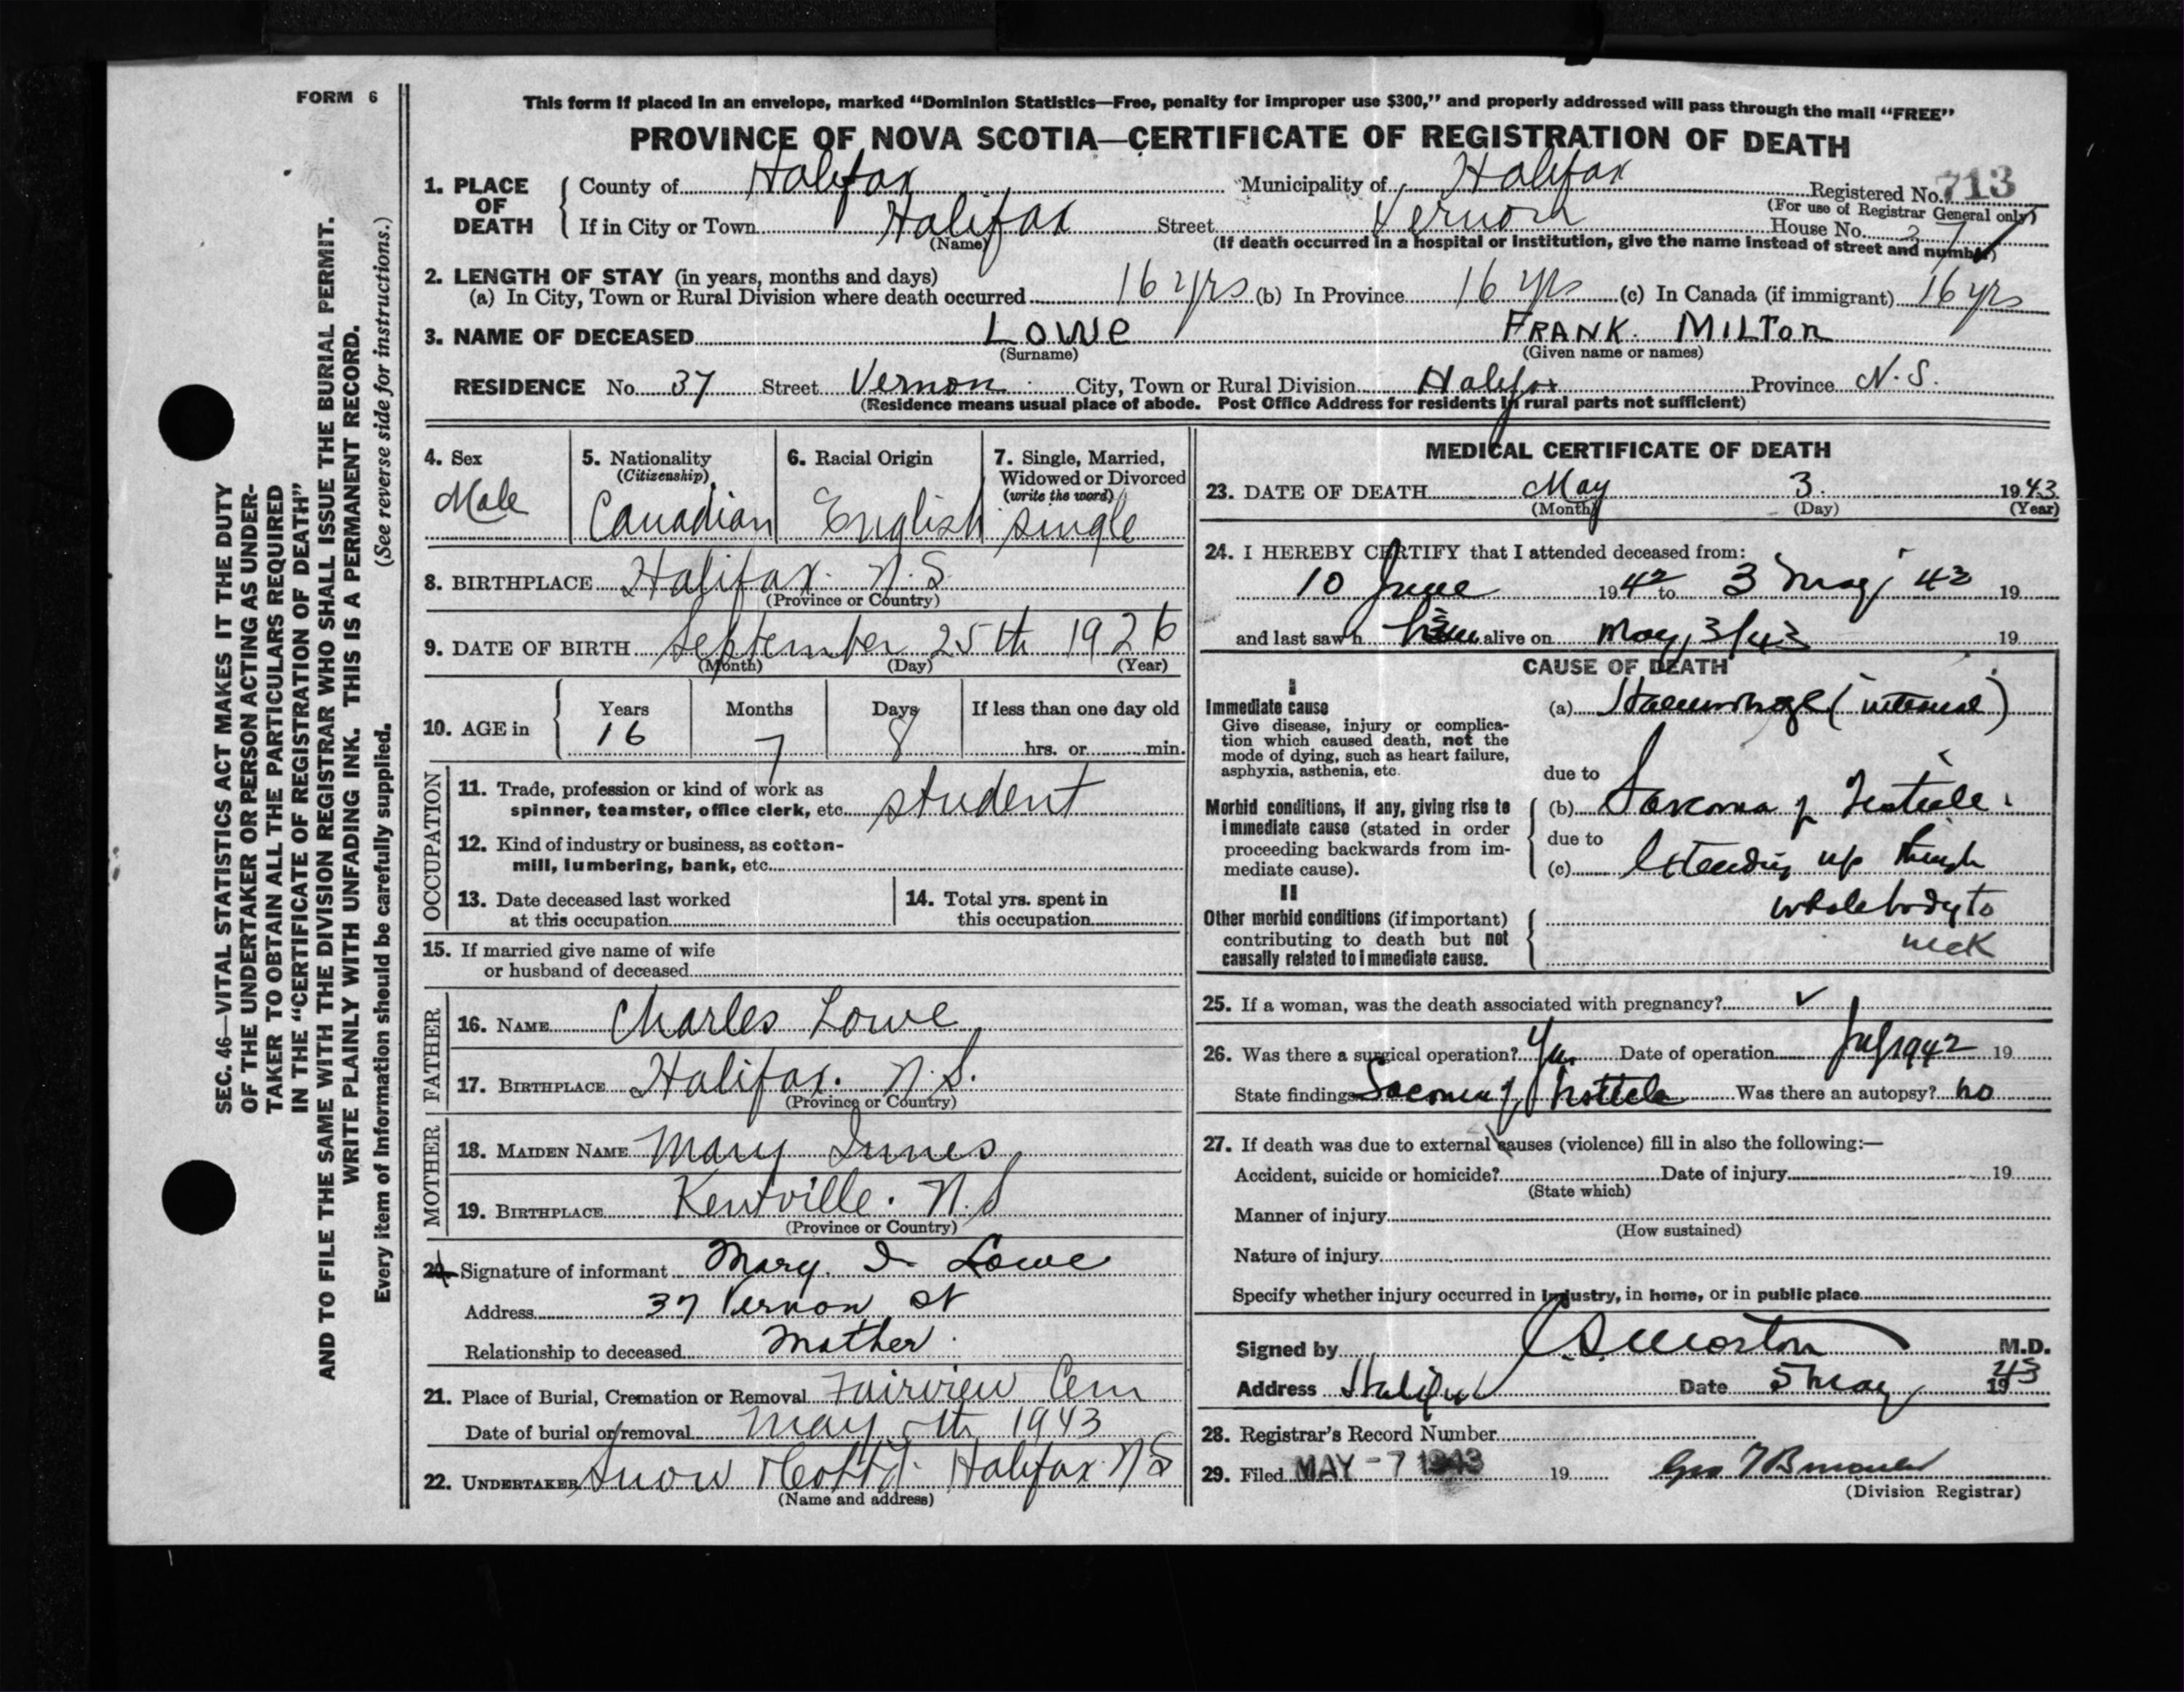 FORM 6
This form if placed in an envelope, marked "Dominion Statistics—Free, penalty for improper use $300," and properly addressed will pass through the mail "FREE"
PROVINCE OF NOVA SCOTIA—CERTIFICATE OF REGISTRATION OF DEATH
1. PLACE OF DEATH
County of Halifax Municipality of Halifax Registered No. 713
(For use of Registrar General only)
If in City or Town Halifax Street Vernon House No. 37
(Name) (If death occurred in a hospital or institution, give the name instead of street and number)
2. LENGTH OF STAY (in years, months and days)
(a) In City, Town or Rural Division where death occurred 16 yrs (b) In Province 16 yrs (c) In Canada (if immigrant) 16 yrs
3. NAME OF DECEASED LOWE FRANK. MILTON
(Surname) (Given name or names)
RESIDENCE No. 37 Street Vernon City, Town or Rural Division Halifax Province N.S.
(Residence means usual place of abode. Post Office Address for residents in rural parts not sufficient)
4. Sex
Male
5. Nationality
(Citizenship)
Canadian
6. Racial Origin
English
7. Single, Married,
Widowed or Divorced
(write the word)
single
8. BIRTHPLACE Halifax. N.S
(Province or Country)
9. DATE OF BIRTH September 25th 1926
(Month) (Day) (Year)
10. AGE in
Years Months Days If less than one day old
16 7 8 hrs. or min.
OCCUPATION
11. Trade, profession or kind of work as
spinner, teamster, office clerk, etc. student
12. Kind of industry or business, as cotton-
mill, lumbering, bank, etc.
13. Date deceased last worked
at this occupation
14. Total yrs. spent in
this occupation
15. If married give name of wife
or husband of deceased
FATHER
16. NAME Charles Lowe
17. BIRTHPLACE Halifax. N.S.
(Province or Country)
MOTHER
18. MAIDEN NAME Mary Innes
19. BIRTHPLACE Kentville. N.S
(Province or Country)
20. Signature of informant Mary. I. Lowe
Address 37 Vernon St
Relationship to deceased Mother
21. Place of Burial, Cremation or Removal Fairview Cem
Date of burial or removal May 5th 1943
22. UNDERTAKER Snow & Co Ltd. Halifax NS
(Name and address)
MEDICAL CERTIFICATE OF DEATH
23. DATE OF DEATH May 3. 1943
(Month) (Day) (Year)
24. I HEREBY CERTIFY that I attended deceased from:
10 June 1942 to 3 May 43 19
and last saw h him alive on May 3/43 19
CAUSE OF DEATH
I
Immediate cause
Give disease, injury or complica-
tion which caused death, not the
mode of dying, such as heart failure,
asphyxia, asthenia, etc.
(a) Haemorrhage (internal)
due to
Morbid conditions, if any, giving rise to
immediate cause (stated in order
proceeding backwards from im-
mediate cause).
(b) Sarcoma of Testicle
due to
(c) Extending up through
whole body to
neck
II
Other morbid conditions (if important)
contributing to death but not
causally related to immediate cause.
25. If a woman, was the death associated with pregnancy?
26. Was there a surgical operation? Yes Date of operation July 1942 19
State findings Sarcoma of Was there an autopsy? no
27. If death was due to external causes (violence) fill in also the following:—
Accident, suicide or homicide? Date of injury 19
(State which)
Manner of injury
(How sustained)
Nature of injury
Specify whether injury occurred in industry, in home, or in public place
Signed by Morton M.D.
Address Halifax Date 5 May 1943
28. Registrar's Record Number
29. Filed MAY -7 1943 19
(Division Registrar)
SEC. 46—VITAL STATISTICS ACT MAKES IT THE DUTY
OF THE UNDERTAKER OR PERSON ACTING AS UNDER-
TAKER TO OBTAIN ALL THE PARTICULARS REQUIRED
IN THE "CERTIFICATE OF REGISTRATION OF DEATH"
AND TO FILE THE SAME WITH THE DIVISION REGISTRAR WHO SHALL ISSUE THE BURIAL PERMIT.
WRITE PLAINLY WITH UNFADING INK. THIS IS A PERMANENT RECORD.
Every item of information should be carefully supplied. (See reverse side for instructions.)